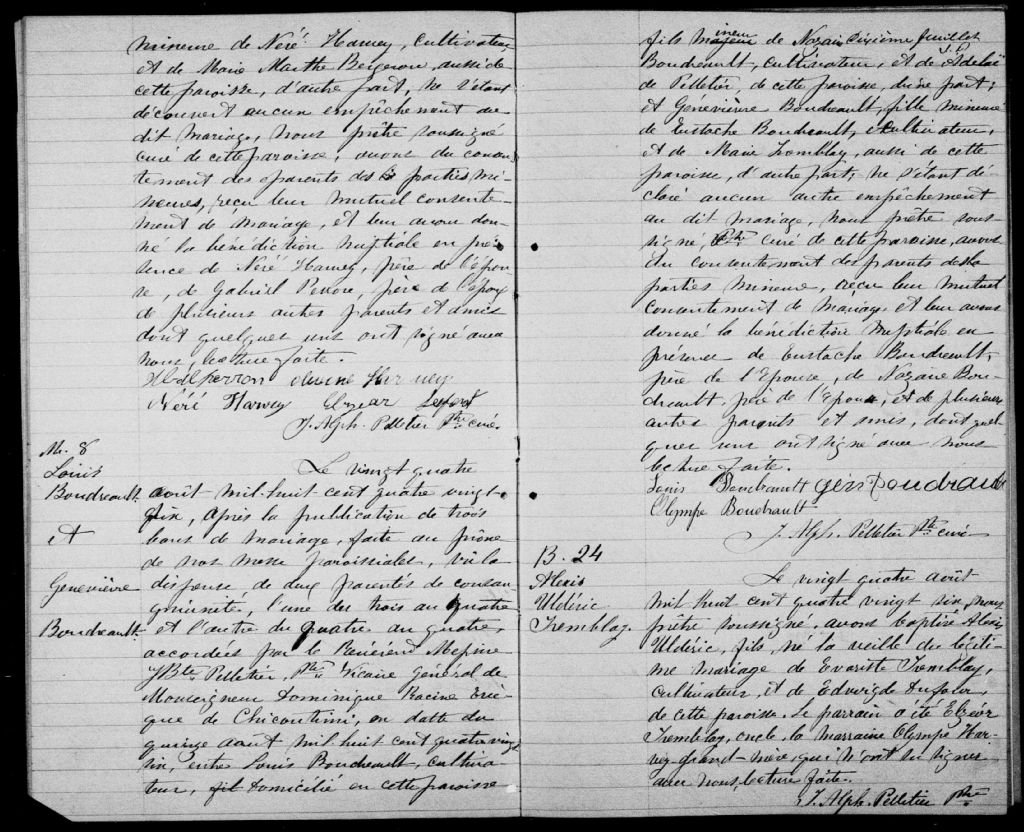 mineure de Néré Harvey, cultivateur,
et de Marie Marthe Bergeron, aussi de
cette paroisse, d'autre part, ne s'étant
découvert aucun empêchement au
dit mariage, nous prêtre soussigné
curé de cette paroisse, avons du consen
tement des parents des parties mi-
neures, reçu leur mutuel consente-
ment de mariage, et leur avons don-
né la bénédiction nuptiale en pré-
sence de Néré Harvey, père de l'épou
se, de Gabriel Perron, père de l'époux
de plusieurs autres parents et amis
dont quelques uns ont signé avec
nous, lecture faite.
Abel perron Harvey
Néré Harvey
J. Alph. Pelletier Ptre curé.
M. 8
Louis
Boudreault
et
Geneviève
Boudreault
Le vingt quatre
août mil-huit cent quatre vingt-
six, après la publication de trois
bans de mariage, faite au prône
de nos messes paroissiales, vu la
dispense de deux parentés de consan
guinité, l'une du trois au quatre
et l'autre du quatre au quatre,
accordés par le Révérend Messire
J. Bte Pelletier, Ptre Vicaire Général de
Monseigneur Dominique Racine Evê-
que de Chicoutimi, en datte du
quinze août mil huit cent quatre vingt
six, entre Louis Boudreault, cultiva-
teur, domicilié en cette paroisse
Dixième feuillet
J.P.
fils mineur de Nazaire
Boudreault, cultivateur, et de Adelaï
de Pelletier, de cette paroisse, d'une part;
et Geneviève Boudreault, fille mineure
de Eustache Boudreault, cultivateur,
et de Marie Tremblay, aussi de cette
paroisse, d'autre part, ne s'étant dé-
claré aucun autre empêchement
au dit mariage, nous prêtre sous-
signé Ptre curé de cette paroisse, avons
du consentement des parents des
parties mineure, reçu leur mutuel
consentement de mariage et leur avons
donné la bénédiction nuptiale en
présence de Eustache Boudreault,
père de l'Epouse, de Nazaire Bou-
dreault, père de l'Epoux, et de plusieurs
autres parents et amis, dont quel
ques uns ont signé avec nous
lecture faite.
Louis Boudreault
Olympe Boudrault
J. Alph. Pelletier Ptre curé
B. 24
Alexis
Uldéric
Tremblay.
Le vingt quatre août
mil huit cent quatre vingt six, nous
prêtre soussigné, avons baptisé Alexis
Uldéric, fils, né la veille du légiti-
me mariage de Evariste Tremblay,
cultivateur, et de Edwige Dufour,
de cette paroisse. Le parrain a été Elzéar
Tremblay, oncle, la marraine Olympe Har-
vey grand-mère, qui n'ont su signer
avec nous, lecture faite.
J. Alph. Pelletier Ptre